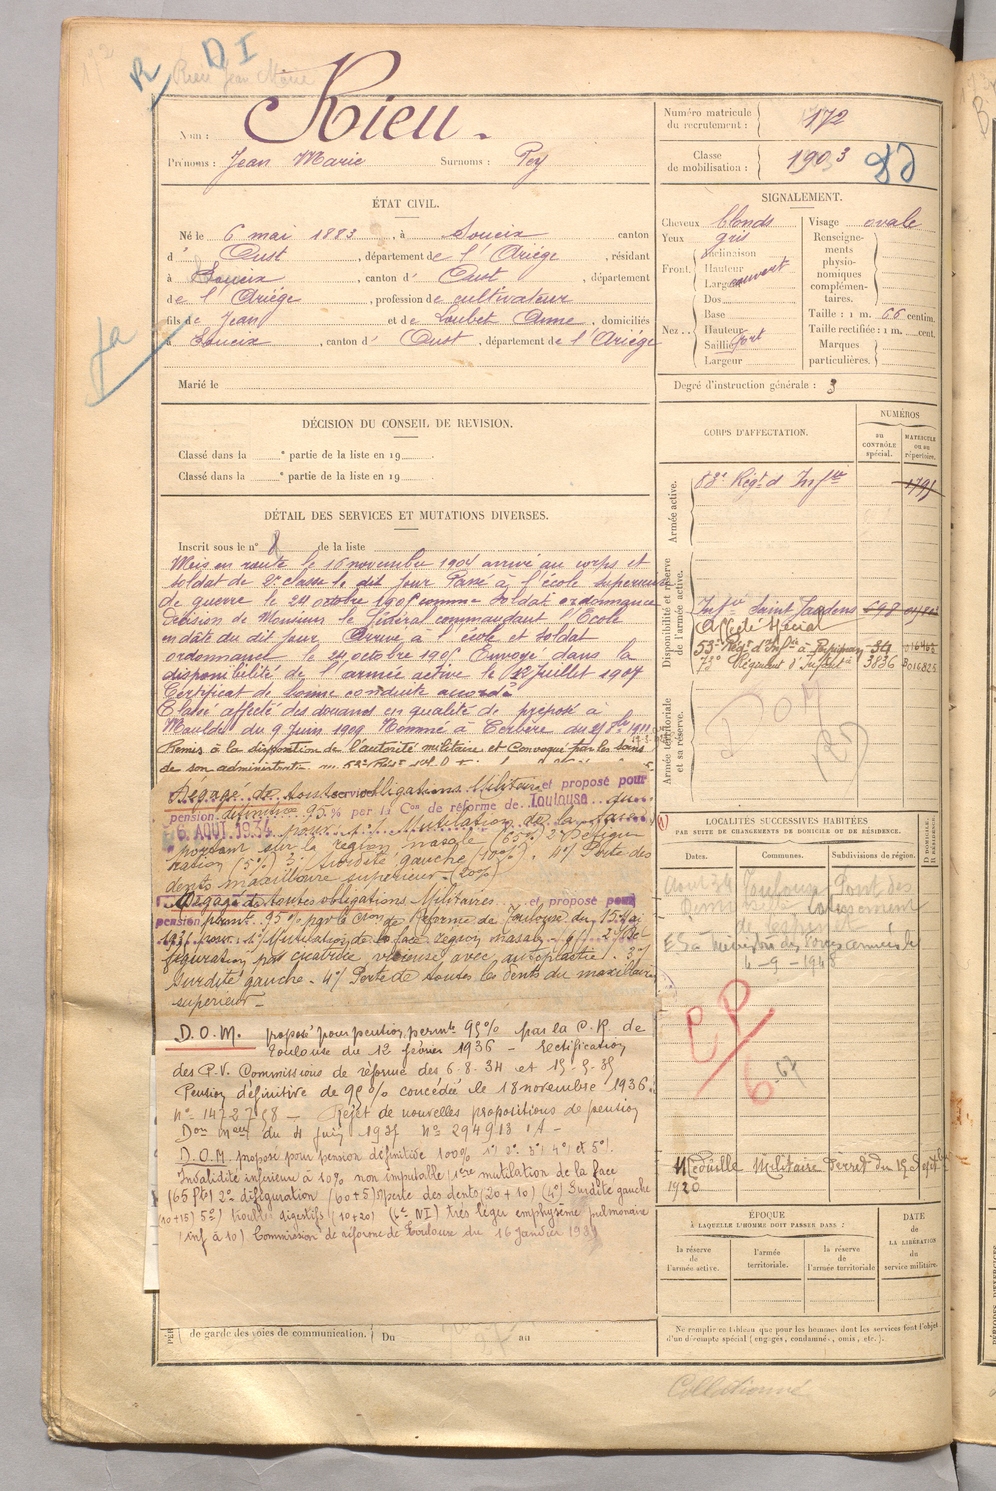 172
R
D I
Rieu Jean Marie
Nom : Rieu.
Prénoms : Jean Marie Surnoms : Pey
Numéro matricule du recrutement : 172
Classe de mobilisation : 1903
ÉTAT CIVIL.
Né le 6 mai 1883, à Soueix canton
d' Oust, département de l'Ariège, résidant
à Soueix, canton d' Oust, département
de l'Ariège, profession de cultivateur
fils de Jean et de Loubet Anne, domiciliés
à Soueix, canton d' Oust, département de l'Ariége
Marié le
SIGNALEMENT.
Cheveux blonds
Yeux gris
Front. Inclinaison
Hauteur
Largeur couvert
Nez. Dos
Base
Hauteur
Saillie fort
Largeur
Visage ovale
Renseignements physionomiques complémentaires.
Taille : 1 m. 66 centim.
Taille rectifiée : 1 m. cent.
Marques particulières.
Degré d'instruction générale : 3
DÉCISION DU CONSEIL DE REVISION.
Classé dans la e partie de la liste en 19
Classé dans la e partie de la liste en 19
DÉTAIL DES SERVICES ET MUTATIONS DIVERSES.
Inscrit sous le n° de la liste
Mis en route le 16 novembre 1904 arrivé au corps et
soldat de 2e classe le dit jour Passé à l'école supérieure
de guerre le 24 octobre 1905 comme soldat ordonnance
Décision de Monsieur le Général commandant l'École
en date du dit jour Arrivé à l'école et soldat
ordonnance le 24 octobre 1905 Envoyé dans la
disponibilité de l'armée active le 12 juillet 1907
Certificat de bonne conduite accordé
Classé affecté des douanes en qualité de préposé à
Maulde du 9 juin 1909 Nommé à Cerbère du
Remis à la disposition de l'autorité militaire et Convoqué par les soins
de son administration
Dégagé de toutes obligations Militaires et proposé pour
pension définitive 95% par la Con de réforme de Toulouse du
6 AOUT 1934 pour 1°/ Mutilation de la face
portant sur la région nasale (65%) 2°/ Défigu
ration (5%) 3°/ Surdité gauche (10%). 4°/ Perte des
dents maxillaire supérieur (20%)
Dégagé de toutes obligations Militaires et proposé pour
pension permte 95% par la Con de Réforme de Toulouse du 15 Mai
1935 pour 1°/ Mutilation de la face région nasale 2°/ Dé
figuration par cicatrice vicieuse avec autoplastie. 3°/
Surdité gauche. 4°/ Perte de toutes les dents du maxillaire
supérieur
D.O.M. proposé pour pension permte 95% par la C.R. de
Toulouse du 12 février 1936 - Rectification
des P.V. Commissions de réforme des 6-8-34 et 15-5-35
Pension définitive de 95% concédée le 18 novembre 1936.
Rejet de nouvelles propositions de pension
du 4 juin 1937 n° 294913
D.O.M. proposé pour pension définitive 100% 1°/ 2°/ 3°/ 4°/ et 5°/.
Invalidité inférieure à 10% non imputable / 1ère mutilation de la face
(65%) 2° défiguration (60+5) 3° perte des dents (20+10) (4°) Surdité gauche
(10+15) 5°) troubles digestifs (10+20) (6° NI) très léger emphysème pulmonaire
(inf à 10) Commission de réforme de Toulouse du 16 Janvier 1939
de garde des voies de communication. Du au
CORPS D'AFFECTATION.
NUMÉROS
AU CONTRÔLE spécial.
MATRICULE ou au répertoire.
Armée active.
83e Régt d'Infie 1795
Disponibilité et réserve de l'armée active.
Infie Saint Gaudens 698
Affecté Spécial
53e Régt d'Infie à Perpignan 34
73e Régiment d'Infant. 3836
Armée territoriale et sa réserve.
DOM
LOCALITÉS SUCCESSIVES HABITÉES
PAR SUITE DE CHANGEMENTS DE DOMICILE OU DE RÉSIDENCE.
Dates. Communes. Subdivisions de région.
D. DOMICILE. R. RÉSIDENCE.
Août 34 Toulouse Pont des
Demoiselles Lotissement
ES à Ministre des Forces Armées le
4 - 9 - 1948
CP
6-67
Médaille Militaire Décret du
1920
ÉPOQUE
À LAQUELLE L'HOMME DOIT PASSER DANS :
la réserve de l'armée active.
l'armée territoriale.
la réserve de l'armée territoriale
DATE de LA LIBÉRATION du service militaire.
Ne remplir ce tableau que pour les hommes dont les services font l'objet
d'un décompte spécial (engagés, condamnés, omis, etc.).
Collationné